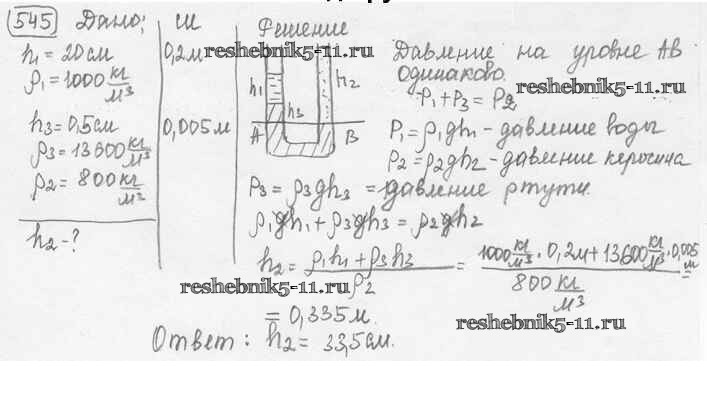 545 Дано; СИ Решение
h₁ = 20 см 0,2 м
ρ₁ = 1000 кг/м³
h₃ = 0,5 см 0,005 м
ρ₃ = 13600 кг/м³
ρ₂ = 800 кг/м³
h₂ - ?
reshebnik5-11.ru
h₁ h₂
h₃
A B
Давление на уровне АВ
одинаково.
reshebnik5-11.ru
P₁ + P₃ = P₂
P₁ = ρ₁gh₁ - давление воды
P₂ = ρ₂gh₂ - давление керосина
P₃ = ρ₃gh₃ = давление ртути.
ρ₁gh₁ + ρ₃gh₃ = ρ₂gh₂
h₂ = (ρ₁h₁ + ρ₃h₃)/ρ₂ = (1000 кг/м³ · 0,2 м + 13600 кг/м³ · 0,005 м)/(800 кг/м³) =
reshebnik5-11.ru
= 0,335 м.
reshebnik5-11.ru
Ответ: h₂ = 33,5 см.